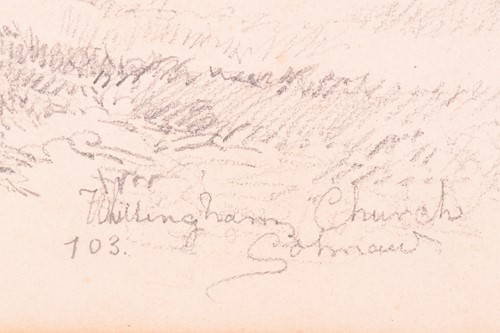 Willingham Church
103. Cotman